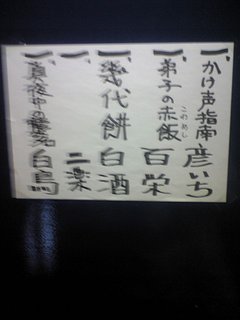 一、かけ声指南 彦いち
一、弟子の赤飯 百栄
こわめし
一、幾代餅 白酒
一、 二楽
一、真夜中の襲名 白鳥